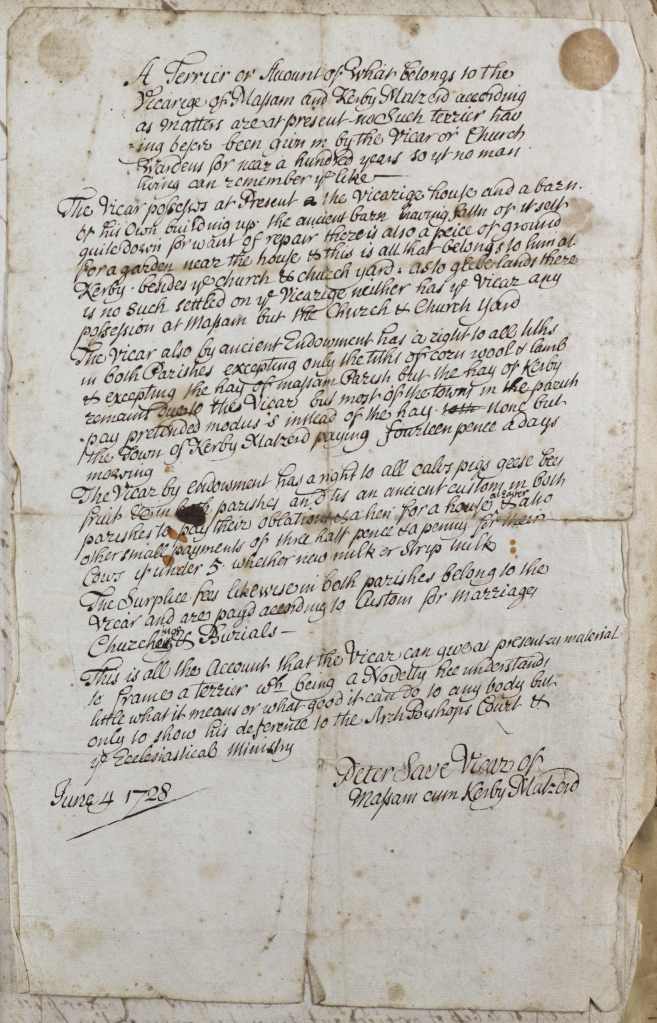 A Terrier or Account of What belongs to the
Vicarige of Massam and Kerby Malzeid according
as matters are at present no Such terrier hav
ing before been givn in by the Vicar or Church
Wardens for near a hundred years so yt no man
living can remember ye like —
The Vicar possesses at Present the Vicarige house and a barn.
of his own building up the ancient barn having falln of itself
quite down for want of repair there is also a peice of ground
for a garden near the house & this is all that belongs to him at
Kerby. besides ye church & church yard. as to glebe lands there
is no such settled on ye Vicarige neither has ye Vicar any
possession at Massam but the Church & Church Yard
The Vicar also by ancient Endowment has a right to all tiths
in both Parishes excepting only the tiths of corn wool & lamb
& excepting the hay of massam Parish but the hay of Kerby
remains due to the Vicar but most of the towns in the parish
pay pretended modus's instead of the hay none but
the Town of Kerby Malzeid paying fourteen pence a days
mowing
The Vicar by endowment has a right to all calvs pigs geese bees
fruit & in both parishes and tis an ancient custom in both
parishes to pay there oblations & a hen for a house at easter & also
other small payments of three half pence & a penny for their
Cows if under 5 whether new milk or Strip milk
The Surplice fees likewise in both parishes belong to the
Vicar and are payd according to Custom for Marriages
Churchings & Burials —
This is all the Account that the Vicar can give at present as material
to frame a terrier wch being a Novelty hee understands
little what it means or what good it can do to any body but
only to show his deference to the Arch Bishops Court &
ye Ecclesiastical Ministry
Peter Save Vicar of
June 4 1728 Massam cum Kerby Malzeid